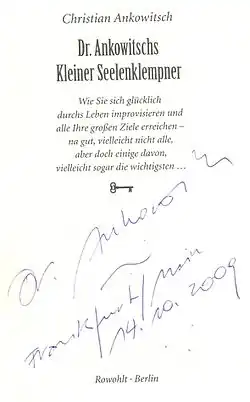 Christian Ankowitsch
Dr. Ankowitschs
Kleiner Seelenklempner
Wie Sie sich glücklich
durchs Leben improvisieren und
alle Ihre großen Ziele erreichen –
na gut, vielleicht nicht alle,
aber doch einige davon,
vielleicht sogar die wichtigsten …
Dr.
Frankfurt/Main
14.10.2009
Rowohlt · Berlin